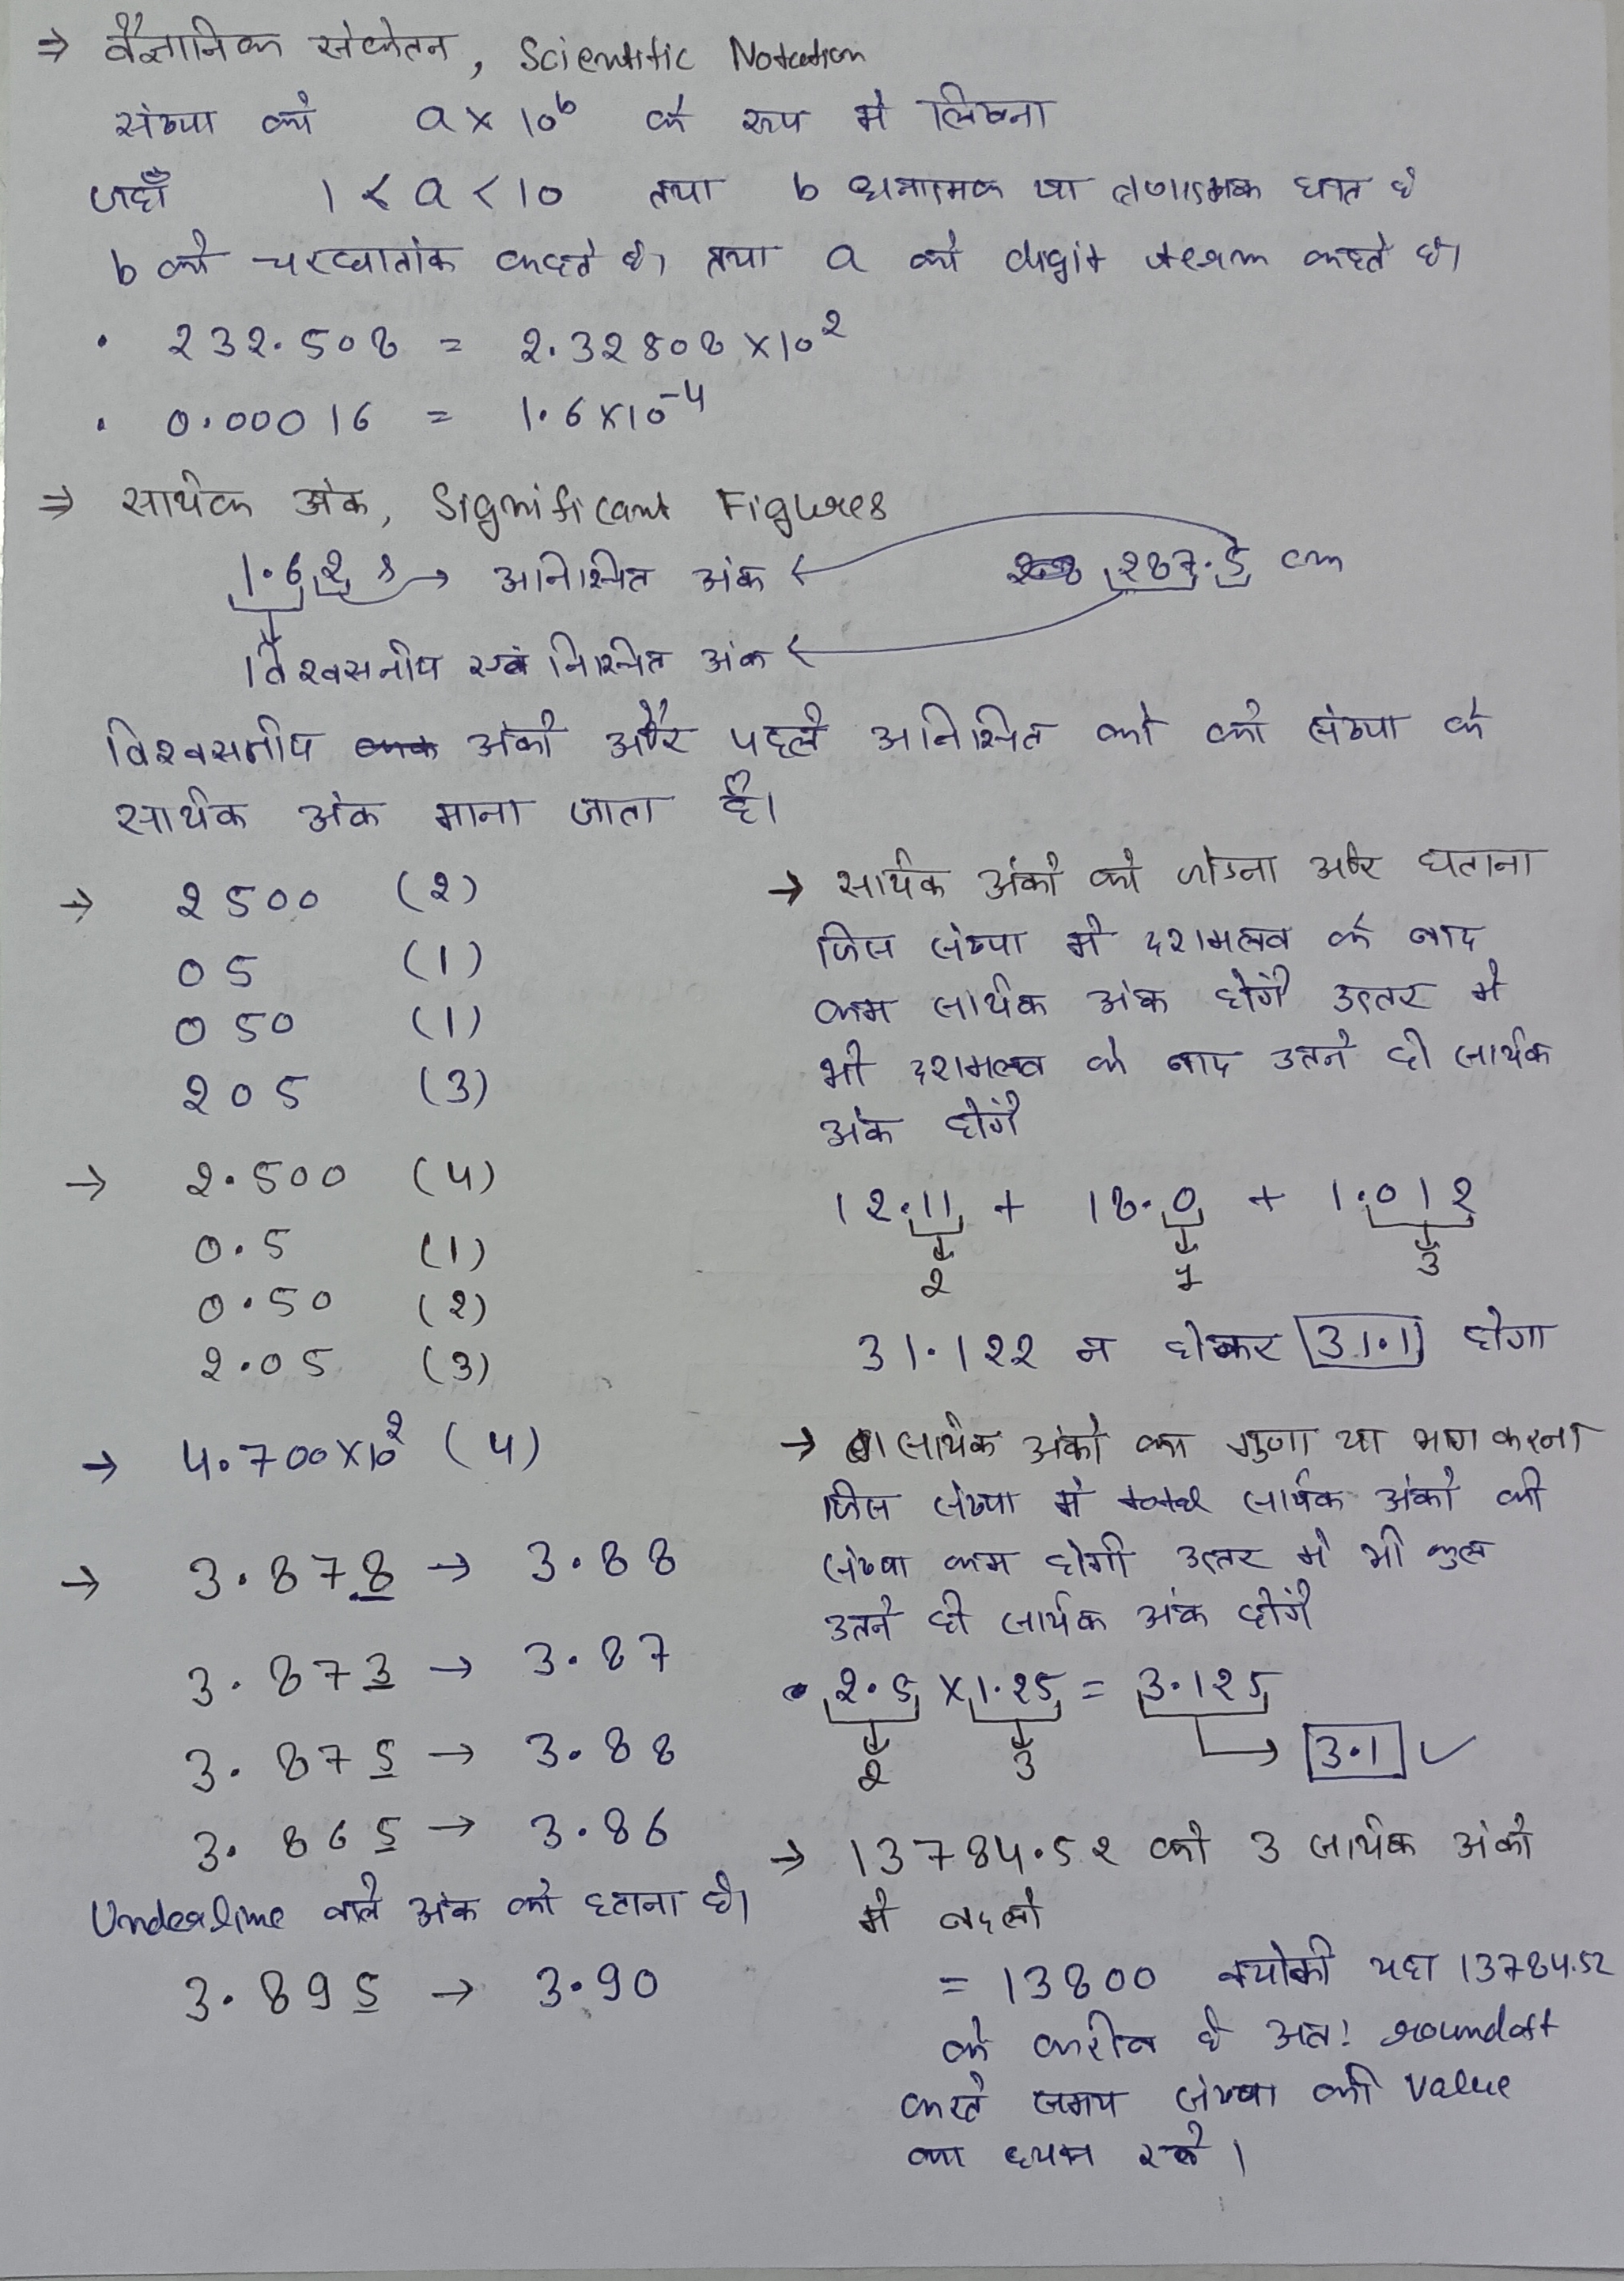 ⇒ वैज्ञानिक संकेतन, Scientific Notation
संख्या को a × 10^b के रूप में लिखना
जहाँ 1 < a < 10 तथा b धनात्मक या ऋणात्मक घात है
b को चरघातांक कहते है। तथा a को digit कहते है।
• 232.508 = 2.32508 × 10^2
• 0.00016 = 1.6 × 10^-4
⇒ सार्थक अंक, Significant Figures
1.62 s → अनिश्चित अंक ← 287.5 cm
विश्वसनीय एवं निश्चित अंक ←
विश्वसनीय अंको और पहले अनिश्चित को को संख्या के
सार्थक अंक माना जाता है।
→ 2500 (2)
05 (1)
050 (1)
205 (3)
→ 2.500 (4)
0.5 (1)
0.50 (2)
2.05 (3)
→ 4.700×10^2 (4)
→ 3.878 → 3.88
3.873 → 3.87
3.875 → 3.88
3.865 → 3.86
Underline वाले अंक को हटाना है।
3.895 → 3.90
→ सार्थक अंको को जोडना और घटाना
जिस संख्या में दशमलव के बाद
कम सार्थक अंक होंगे उत्तर में
भी दशमलव के बाद उतने ही सार्थक
अंक होंगे
12.11 + 18.0 + 1.012
2 1 3
31.122 न होकर 31.1 होगा
→ सार्थक अंको का गुणा या भाग करना
जिस संख्या में सार्थक अंको की
संख्या कम होगी उत्तर में भी कुल
उतने ही सार्थक अंक होंगे
• 2.5 × 1.25 = 3.125
2 3 → 3.1 ✓
→ 13784.52 को 3 सार्थक अंको
में बदलो
= 13800 क्योकी यहा 13784.52
के करीब है अतः roundoff
करते समय संख्या की value
का ध्यान रखे।